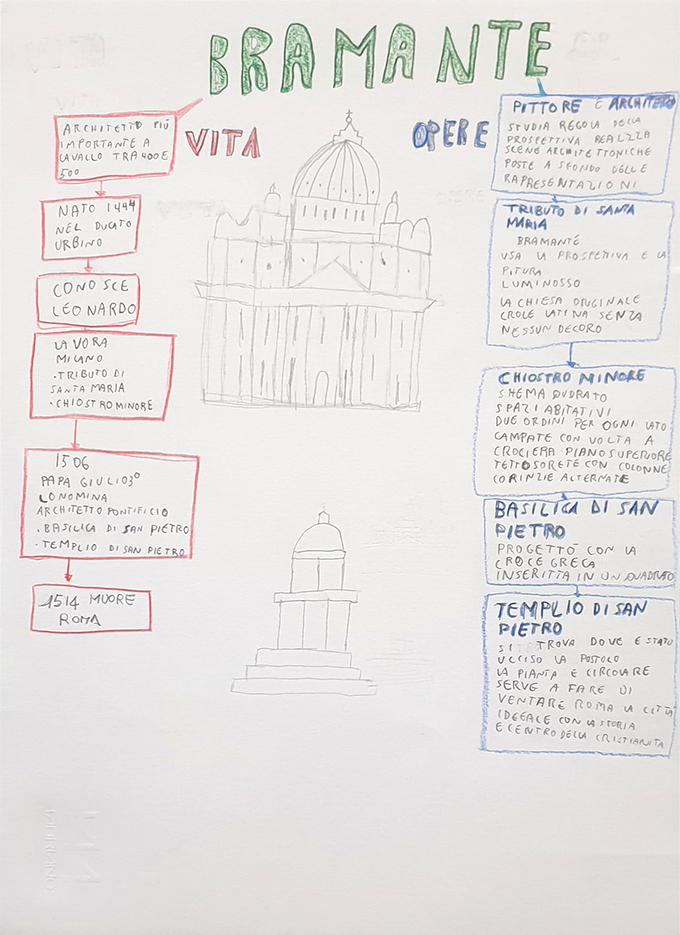 BRAMANTE
VITA
ARCHITETTO PIÚ
IMPORTANTE A
CAVALLO TRA 400 E
500
NATO 1444
NEL DUCATO
URBINO
CONOSCE
LEONARDO
LAVORA
MILANO
·TRIBUTO DI
SANTA MARIA
·CHIOSTRO MINORE
1506
PAPA GIULIO3°
LO NOMINA
ARCHITETTO PONTIFICIO
·BASILICA DI SAN PIETRO
·TEMPLIO DI SAN PIETRO
1514 MUORE
ROMA
OPERE
PITTORE E ARCHITETTO
STUDIA REGOLA DELLA
PROSPETTIVA REALIZZA
SCENE ARCHITETTONICHE
POSTE A SFONDO DELLE
RAPPRESENTAZIONI
TRIBUTO DI SANTA
MARIA
BRAMANTE
USA LA PROSPETTIVA E LA
PITURA
LUMINOSSO
LA CHIESA ORIGINALE
CROCE LATINA SENZA
NESSUN DECORO
CHIOSTRO MINORE
SHEMA QUDRATO
SPAZI ABITATIVI
DUE ORDINI PER OGNI LATO
CAMPATE CON VOLTA A
CROCIERA PIANO SUPERIORE
TETTO SORETE CON COLONNE
CORINZIE ALTERNATE
BASILICA DI SAN
PIETRO
PROGETTO CON LA
CROCE GRECA
INSERITTA IN UN QUADRATO
TEMPLIO DI SAN
PIETRO
SI TROVA DOVE E STATO
UCCISO LA POSTOLO
LA PIANTA E CIRCOLARE
SERVE A FARE DI
VENTARE ROMA LA CITTÀ
IDEEALE CON LA STORIA
E CENTRO DELLA CRISTIANITA